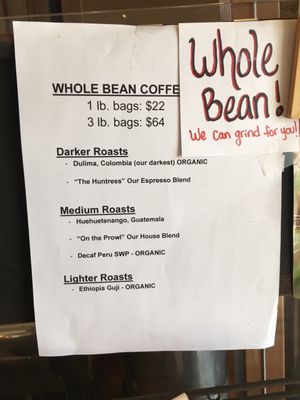 WHOLE BEAN COFFE
1 lb. bags: $22
3 lb. bags: $64
Whole
Bean!
We can grind for you!
Darker Roasts
- Dulima, Colombia (our darkest) ORGANIC
- "The Huntress" Our Espresso Blend
Medium Roasts
- Huehuetenango, Guatemala
- "On the Prowl" Our House Blend
- Decaf Peru SWP - ORGANIC
Lighter Roasts
- Ethiopia Guji - ORGANIC